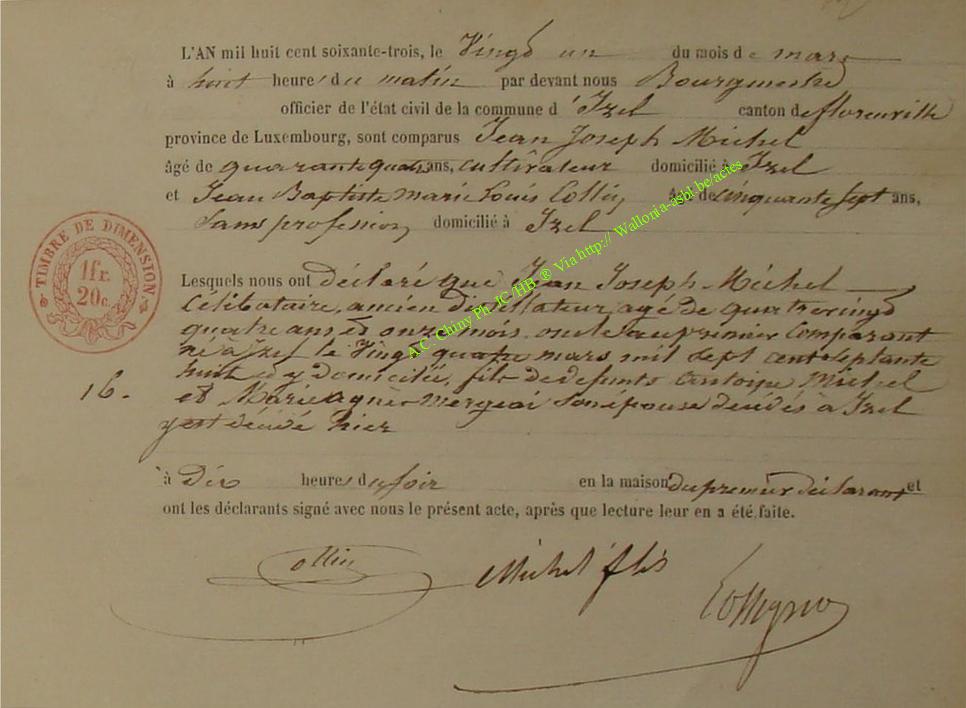 L'AN mil huit cent soixante-trois, le Vingt un du mois de mars
à huit heures du matin par devant nous Bourgmestre
officier de l'état civil de la commune d'Izel canton de florenville
province de Luxembourg, sont comparus Jean Joseph Michel
âgé de quarante quatre ans, cultivateur domicilié à Izel
et Jean Baptiste marie Louis Collin âgé de cinquante sept ans,
Sans profession domicilié à Izel
TIMBRE DE DIMENSION
1 fr.
20 c.
Lesquels nous ont déclaré que Jean Joseph Michel
Célibataire, ancien distillateur, agé de quatrevingt
quatre ans et onze mois, oncle au premier Comparant
né à Izel le Vingt quatre mars mil sept cent septante
huit et y domicilié, fils de defunts Antoine Michel
16.
et Marie agnès mergeai son épouse décédés à Izel
y est décédé hier
à dix heures du soir en la maison du premier déclarant et
ont les déclarants signé avec nous le présent acte, après que lecture leur en a été faite.
Collin Michel fils
A.C. Chiny Ph. JC/HB ® Via http:// Wallonia-asbl.be/actes